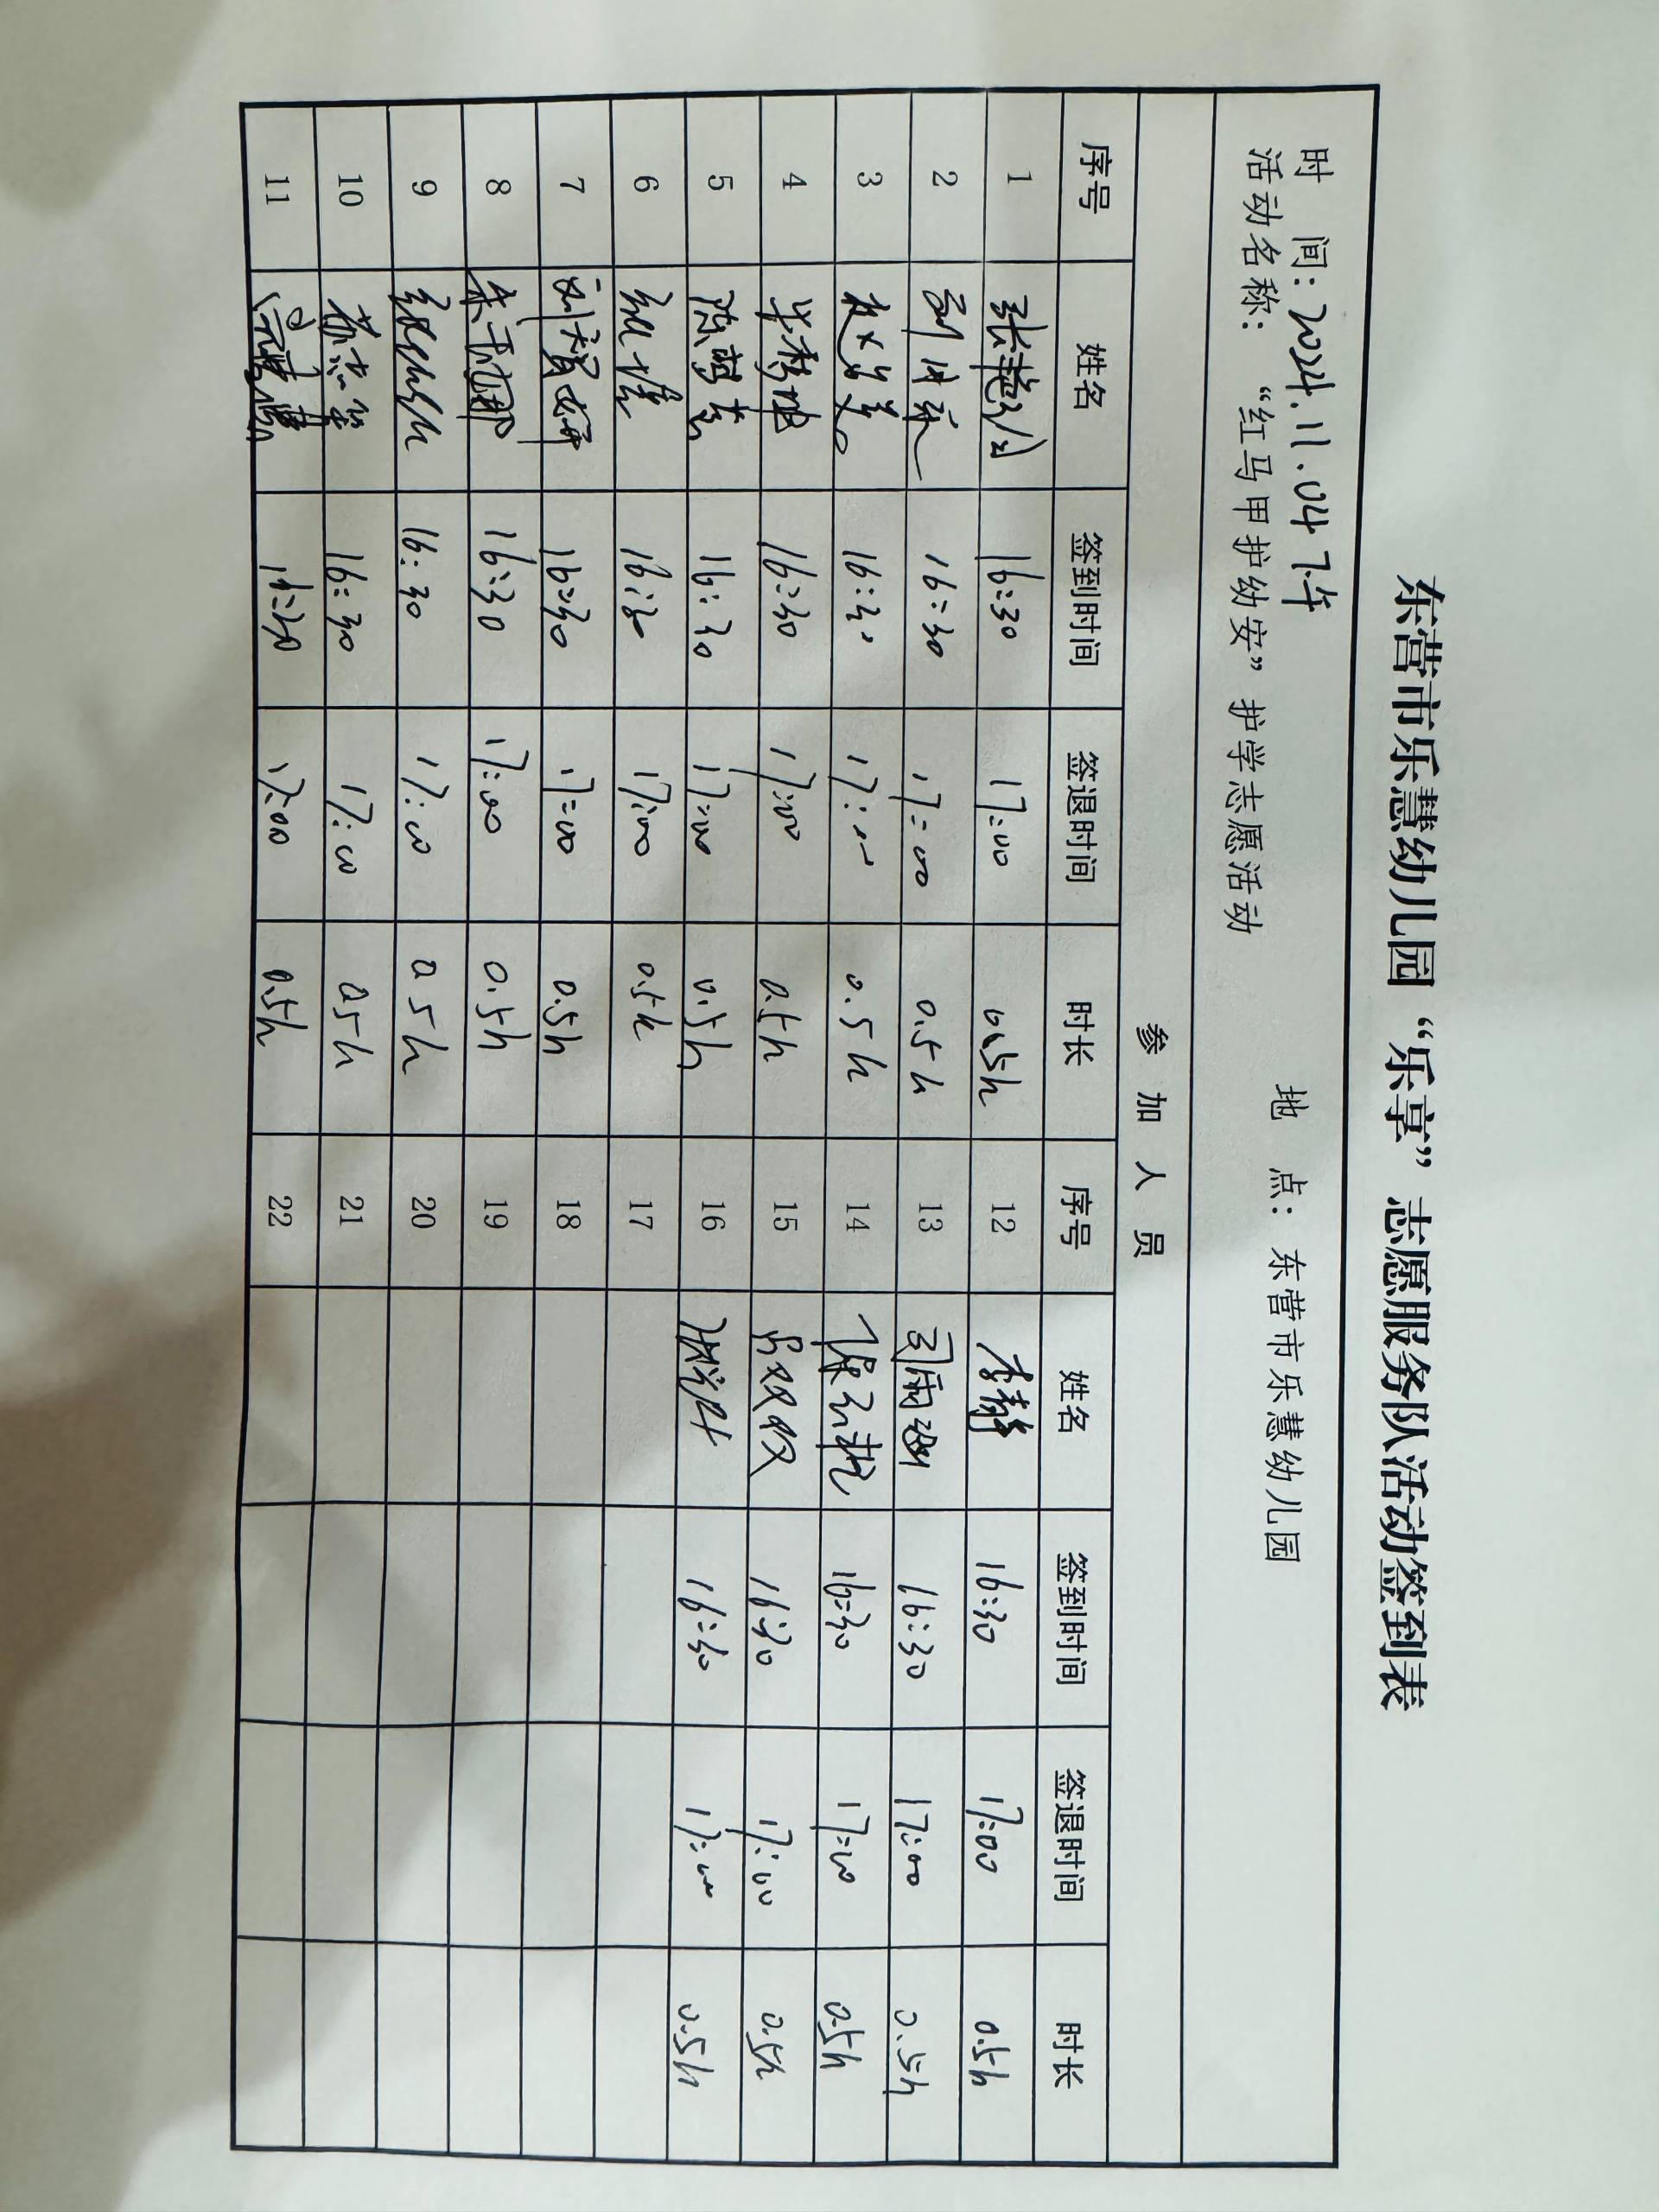 东营市乐慧幼儿园“乐享”志愿服务队活动签到表
时 间：2024.11.04 下午 地 点：东营市乐慧幼儿园
活动名称：“红马甲护幼安”护学志愿活动
参 加 人 员
序号 姓名 签到时间 签退时间 时长 序号 姓名 签到时间 签退时间 时长
1 16:30 17:00 0.5h 12 李静 16:30 17:00 0.5h
2 16:30 17:00 0.5h 13 16:30 17:00 0.5h
3 16:30 17:00 0.5h 14 16:30 17:00 0.5h
4 16:30 17:00 0.5h 15 吕双双 16:30 17:00 0.5h
5 16:30 17:00 0.5h 16 16:30 17:00 0.5h
6 16:30 17:00 0.5h 17
7 16:30 17:00 0.5h 18
8 16:30 17:00 0.5h 19
9 16:30 17:00 0.5h 20
10 16:30 17:00 0.5h 21
11 16:30 17:00 0.5h 22